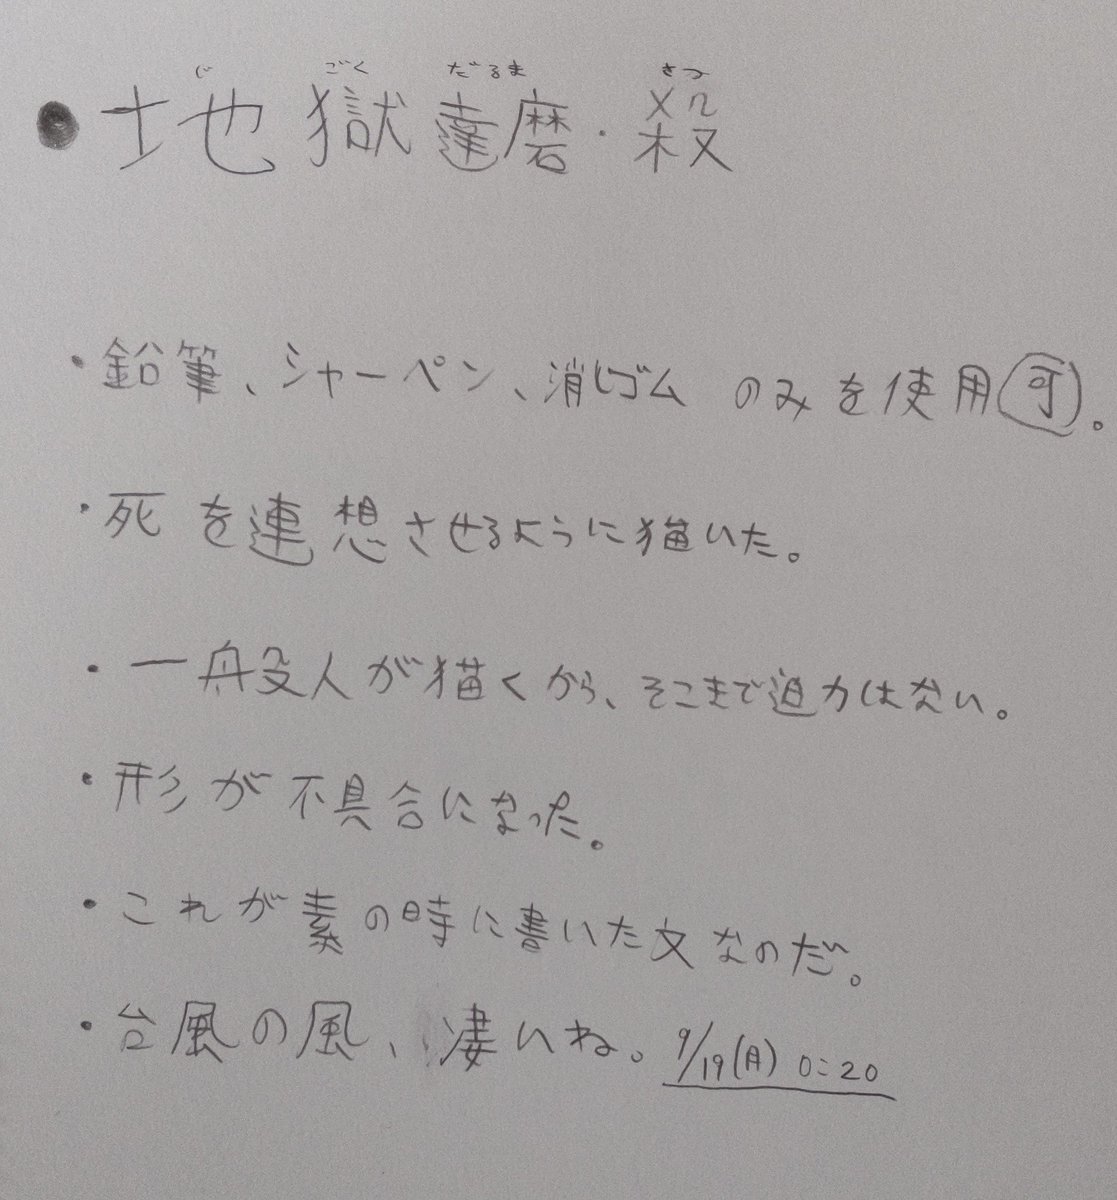 じ ごく だるま さつ
●地獄達磨・殺
・鉛筆、シャーペン、消しゴムのみを使用可。
・死を連想させるように描いた。
・一般人が描くから、そこまで迫力はない。
・形が不具合になった。
・これが素の時に書いた文なのだ。
・台風の風、凄いね。9/19(月) 0:20